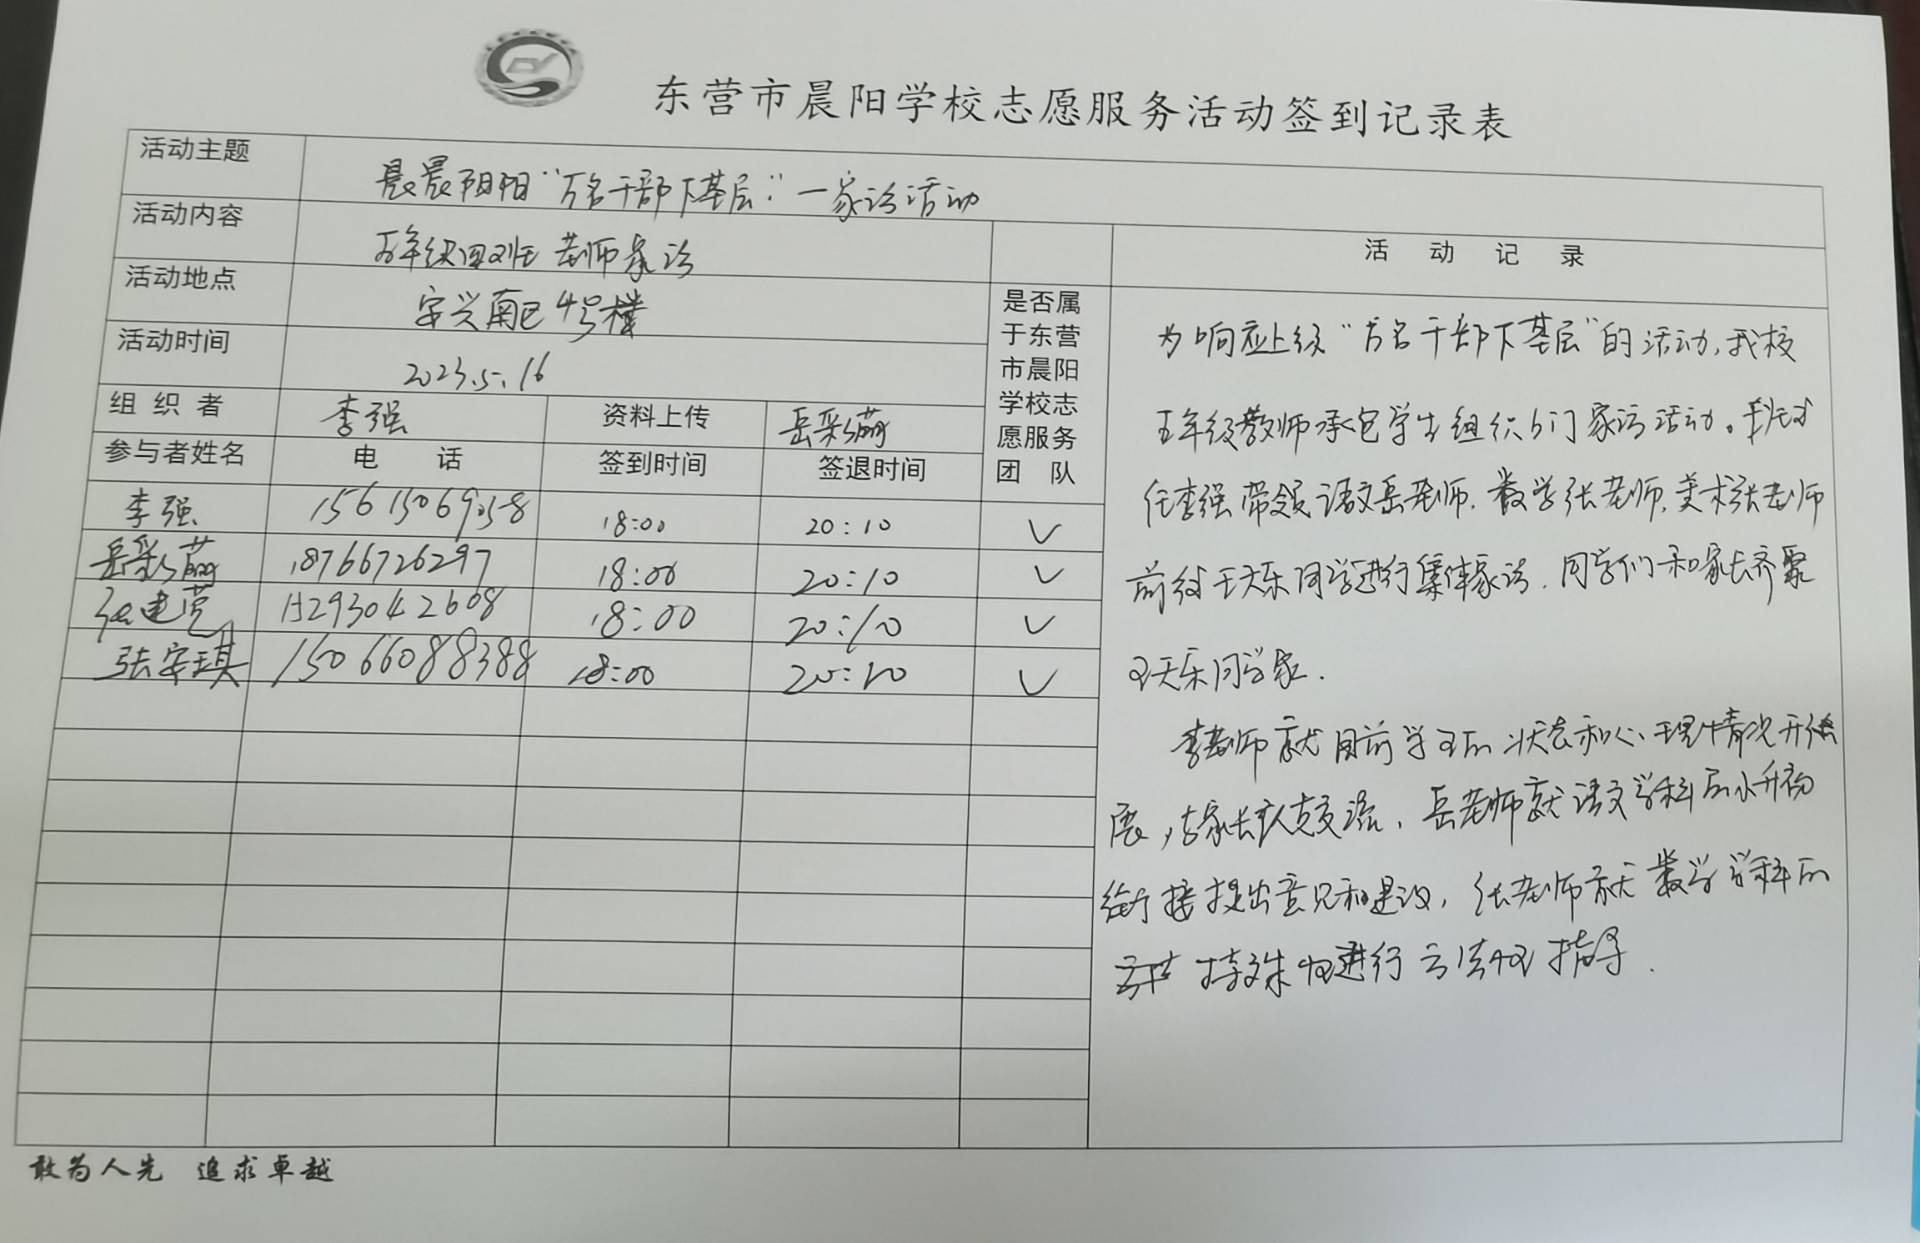 东营市晨阳学校志愿服务活动签到记录表
活动主题 晨晨阳阳“万名干部下基层”一家访活动
活动内容 五年级四班 老师家访
活动地点 安兴南区4号楼
活动时间 2023.5.16
组织者 李强 资料上传 岳彩萌
参与者姓名 电话 签到时间 签退时间
是否属
于东营
市晨阳
学校志
愿服务
团队
李强 18:00 20:10 ✓
岳彩萌 18766726297 18:00 20:10 ✓
18:00 20:10 ✓
张安琪 15066088388 18:00 20:10 ✓
活动记录
为响应上级“万名干部下基层”的活动,我校
五年级教师承包学生组织入门家访活动。班主
任李强带领语文岳老师.数学张老师.美术张老师
前往王天乐同学进行集体家访.同学们和家长齐聚
王天乐同学家.
李老师就目前学习的状态和心理情况开始
展,与家长认真交流.岳老师就语文学科的小升初
衔接提出意见和建议,张老师就数学学科的
特殊性进行方法性指导.
敢为人先 追求卓越